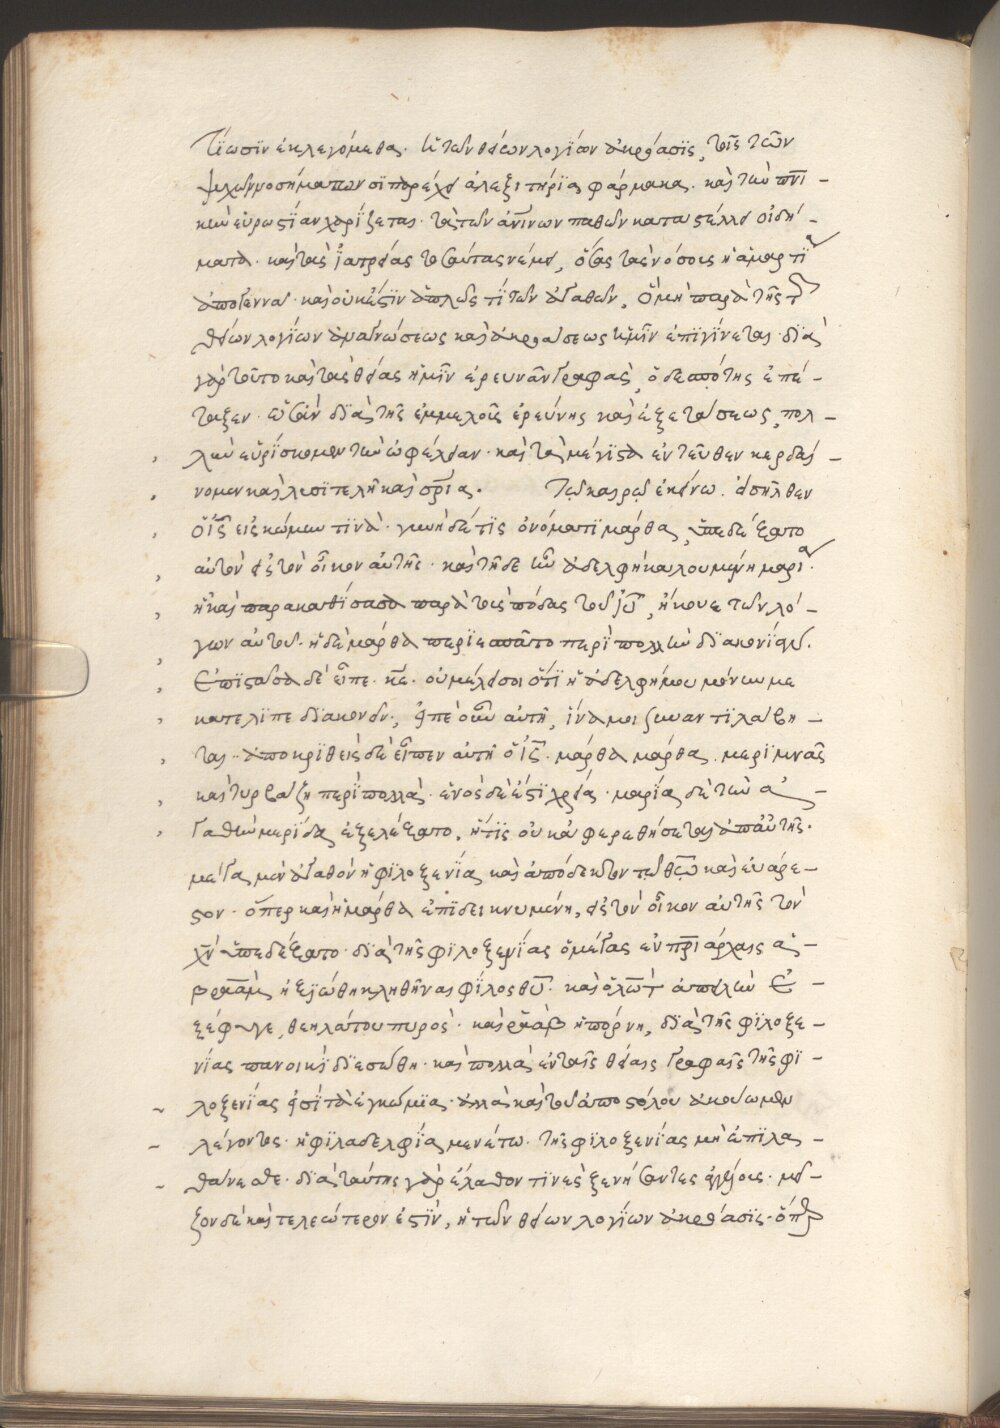 τίωσϊν ἐκλεγόμεθα. ἡ τῶν θείων λογίων ἀκρόασϊς, τοῖς τῶν
ψυχῶν νοσήμασϊν παρέχει ἀλεξιτήρϊα φάρμακα. καὶ τὴν πνι –
κὴν εὐρωστίαν χαρίζεται. τὰ τῶν ἀνίνων παθῶν καταστέλλει οἰδή –
ματα. καὶ τὰς ἰατρείας τοσαύτας νέμει, ὅσας τὰς νόσους ἡ ἁμαρτϊα
ἀπογεννᾶ. καὶ οὐκ ἔστϊν ἁπλῶς τϊ τῶν ἀγαθῶν, ὃ μὴ παρὰ τῆς τ
θείων λογίων ἀναγνώσεως καὶ ἀκροάσεως ἡμῖν ἐπιγίνεται. δϊὰ
γὰρ τοῦτο καὶ τὰς θείας ἡμῖν ἐρευνᾶν γραφὰς, ὁ δεσπότης ἐπέ –
ταξεν. εἰ γὰρ διὰ τῆς ἐμμελοῦς ἐρεύνης καὶ ἐξετάσεως, πολ –
λὴν εὑρίσκομεν τὴν ὠφέλειαν. καὶ τὰ μέγιστα ἐντεῦθεν κερδαί –
νομεν καὶ λυσϊτελῆ καὶ σρϊα. Τῷ καιρῷ ἐκείνω. εἰσῆλθεν
ὁ ἰς εἰς κώμην τϊνὰ. γυνὴ δέ τϊς ὀνόματϊ μάρθα, ὑπεδέξατο
αὐτὸν εἰς τὸν οἶκον αὐτῆς. καὶ τῆδε ἦν ἀδελφὴ καλουμένη μαρία.
ἣ καὶ παρακαθίσασα παρὰ τοὺς πόδας τοῦ ἰυ, ἤκουε τῶν λό –
γων αὐτοῦ. ἡ δὲ μάρθα περϊεσπᾶτο περϊ πολλὴν δϊακονίαν.
ἐπϊστᾶσα δὲ εἶπε. κε. οὐ μέλει σοι ὅτϊ ἡ ἀδελφή μου μόνην με
κατέλϊπε δϊακονεῖν., εἰπὲ οὖν αὐτῆ, ἵνα μοι συναντϊλάβη –
ται. ἀποκρϊθεὶς δὲ εἶπεν αὐτῆ ὁ ἰς. μάρθα μάρθα. μερϊμνᾶς
καὶ τυρβάζη περϊ πολλὰ. ἑνὸς δὲ ἐστϊ χρεία. μαρία δὲ τὴν ἀ –
γαθὴν μερίδα ἐξελέξατο, ἥτϊς οὐκ ἀφαιρεθήσεται ἀπ' αὐτῆς.
μέγα μὲν ἀγαθὸν ἡ φϊλοξενΐα καὶ ἀπόδεκτον τῶ θω καὶ εὐάρε –
στον. ὅπερ καὶ ἡ μάρθα ἐπϊδεικνυμένη, εἰς τὸν οἶκον αὐτῆς τὸν
χν ὑπεδέξατο. διὰ τῆς φϊλοξενΐας ὁ μέγας ἐν πρϊάρχαις ἀ –
βραὰμ ἠξϊώθη κληθῆναι φίλος θυ. καὶ ὁ λὼτ ἀπειλὴν ἐ –
ξέφυγε, θεηλάτου πυρὸς. καὶ ῥαὰβ ἡ πόρνη, δϊὰ τῆς φϊλοξε –
νίας πανοικὶ δϊεσώθη. καὶ πολλὰ ἐν ταῖς θείαις γραφαῖς τῆς φϊ –
λοξενίας εἰσϊ τὰ ἐγκώμϊα. ἀλλὰ καὶ τοῦ ἀποστόλου ἀκούωμεν
λέγοντος. ἡ φϊλαδελφΐα μενέτω. τῆς φϊλοξενίας μὴ ἐπϊλα –
θάνεσθε. δϊὰ ταύτης γὰρ ἔλαθον τϊνὲς ξενήσαντες ἀγγέλους. μεῖ –
ζον δὲ καὶ τελεώτερον ἐστϊν, ἡ τῶν θείων λογΐων ἀκρόασϊς. ὅπερ